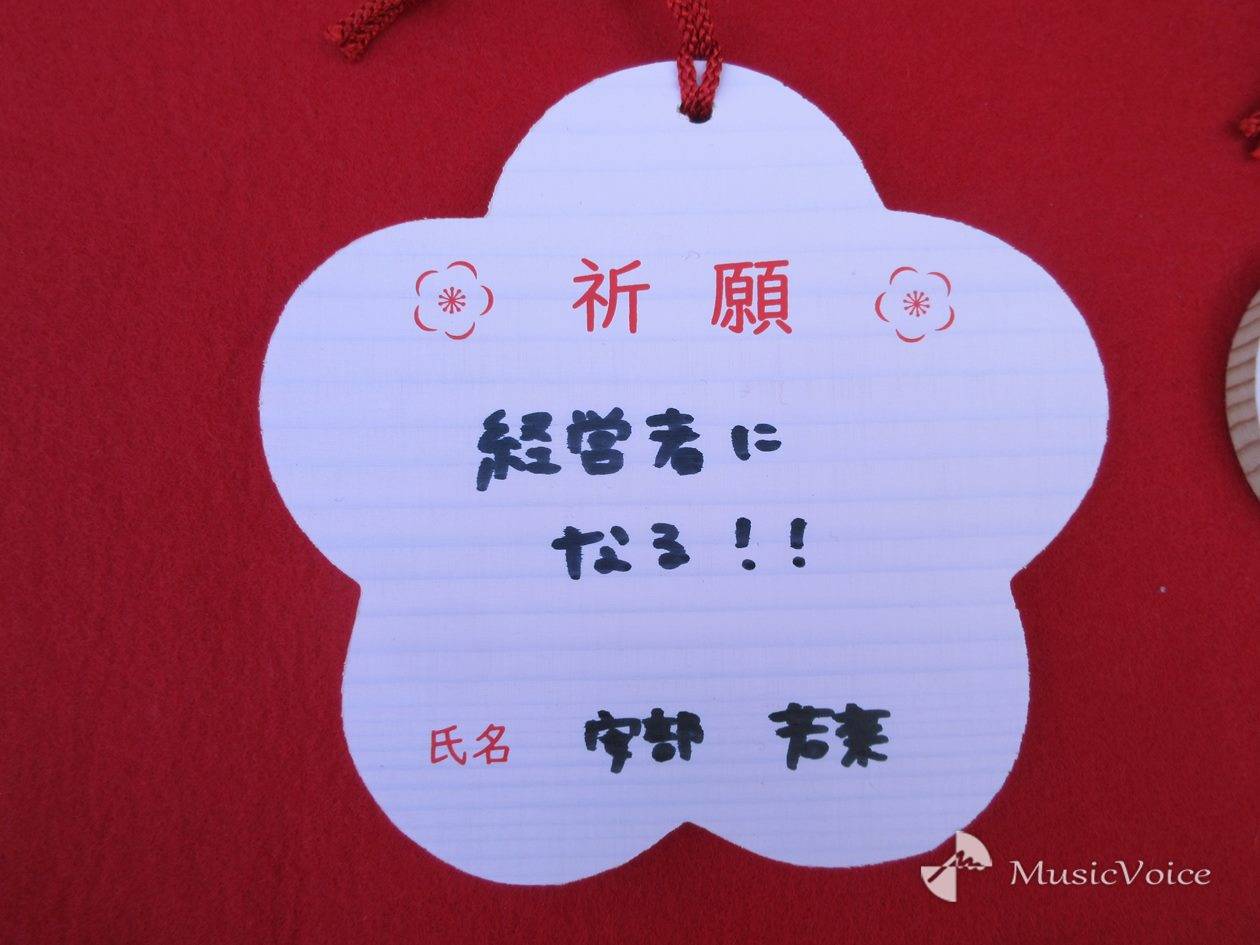 祈願
経営者に
なる!!
氏名 安部 若菜
MusicVoice